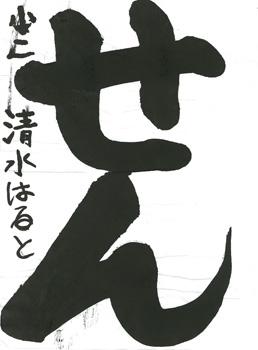 せん
小二 清水はると